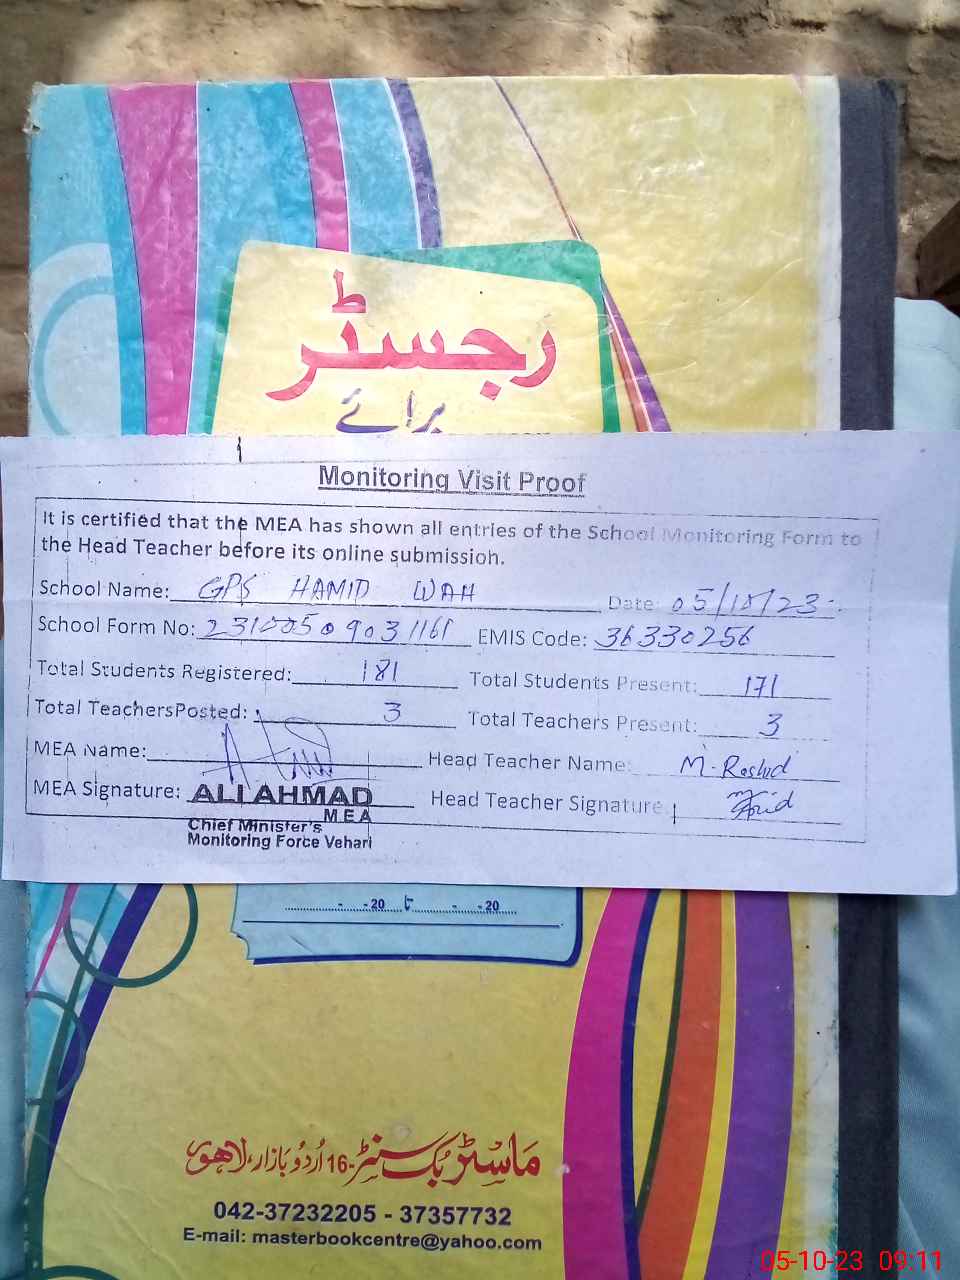 رجسٹر
برائے
Monitoring Visit Proof
It is certified that the MEA has shown all entries of the School Monitoring Form to
the Head Teacher before its online submission.
School Name: GPS HAMID WAH Date: 05/10/23
School Form No: 23100509031161 EMIS Code: 36330256
Total Students Registered: 181 Total Students Present: 171
Total TeachersPosted: 3 Total Teachers Present: 3
MEA Name: Head Teacher Name: M. Rashid
MEA Signature: ALI AHMAD Head Teacher Signature:
M E A
Chief Minister's
Monitoring Force Vehari
- -20 تا - -20
ماسٹر بک سنٹر-16 اُردو بازار، لاہور
042-37232205 - 37357732
E-mail: masterbookcentre@yahoo.com
05-10-23 09:11